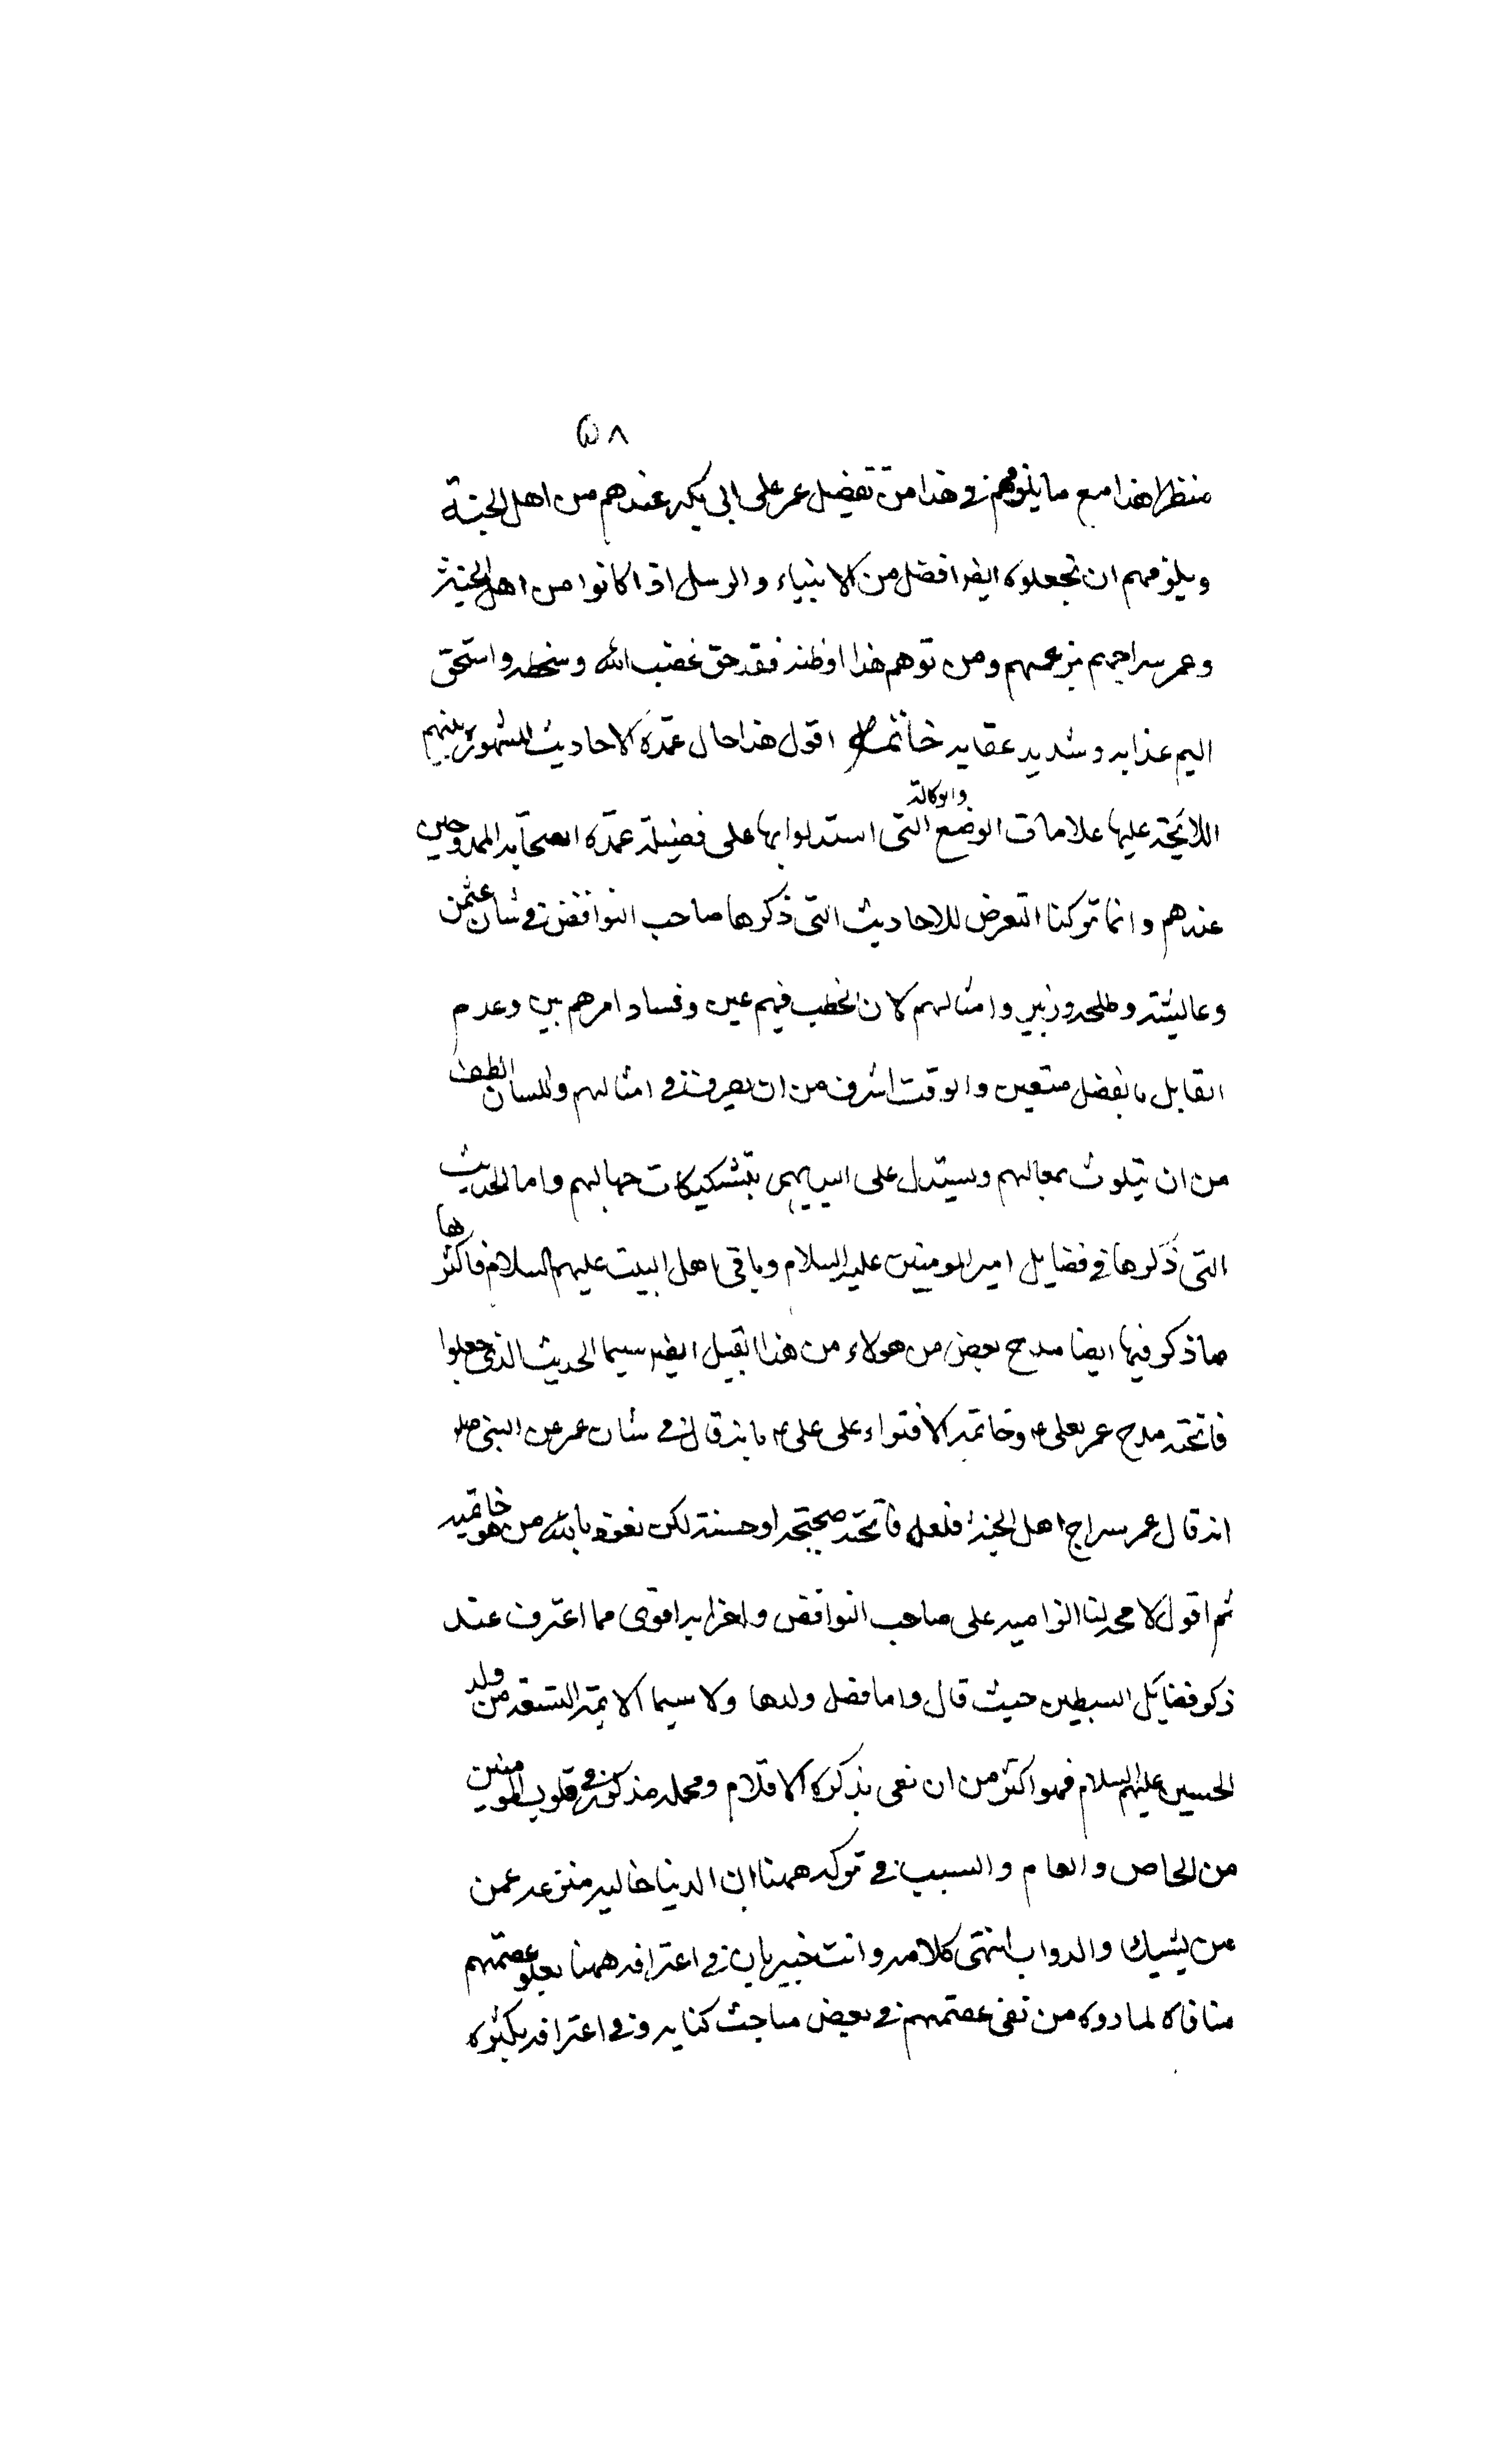 ٥٨
منظرا هذا مع ما يلزمهم في هذا من تفضيل عمر على ابى بكر عندهم من اهل الجنة
ويلزمهم ان تجعلوه ايضا افضل من الانبياء والرسل اذا كانوا من اهل الجنة
وعمر سراجهم بزعمهم ومن توهم هذا او ظنه فقد حق غضب الله وسخطه واستحق
اليم عذابه وشديد عقابه اقول هذا حال عمدة الاحاديث المشهورة بينهم
اللايحة عليها علامات الوضع والوكالة التى استدلوا بها على فضيلة عمدة الصحابه الممدوحين
عندهم وانما تركنا التعرض للاحاديث التى ذكرها صاحب النواقض في شان عثمن
وعايشة وطلحه وزبير وامثالهم لان الخطب فيهم عين وفساد امرهم بين وعدم
القايل بالفضل متعين والوقت اشرف من ان يصرف في امثالهم واللسان الطف
من ان يتلوث بمعاليهم ويستدل على بتشكيكات جهالهم واما الحديث
التى ذكرها في فضايل امير المومنين عليه السلام وباقى اهل البيت عليهم السلام فاكثرها
ما ذكر فيها ايضا مدح بعض من هولاء من هذا القبيل ايضا سيما الحديث الذى جعلوا
فاتحته مدح عمر بعلى ع وخاتمه الافتراء على على ع بانه قال في شان عمر عن النبى صلم
انه قال عمر سراج اهل الجنة فلعل فاتحته صحيحه او حسنة لكن نعوذ بالله من هو خاتميه
ثم اقول لا حجه لنا الزاميه على صاحب النواقض واحزابه اقوى مما اعترف عند
ذكر فضايل السبطين حيث قال واما فضل ولدها ولا سيما الايمة التسعة من ولد
الحسين عليهم السلام فهو اكثر من ان تفى بذكره الاقلام ومحله مذكور في قلوب المومنين
من الخاص والعام والسبب في تركه ههنا ان الدنيا خاليه منتزعه عمن
من يشك والدواب انتهى كلامه وانت خبير بان في اعترافه ههنا بعلو عصمتهم
منافاه لما دوه من نفى عصمتهم في بعض مباحث كتابه وفي اعترافه بكثره